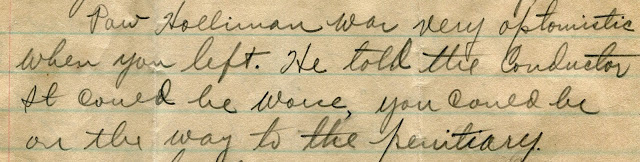 Paw Holliman was very optomistic
when you left. He told the Conductor
It could be worse, you could be
on the way to the penitiary.